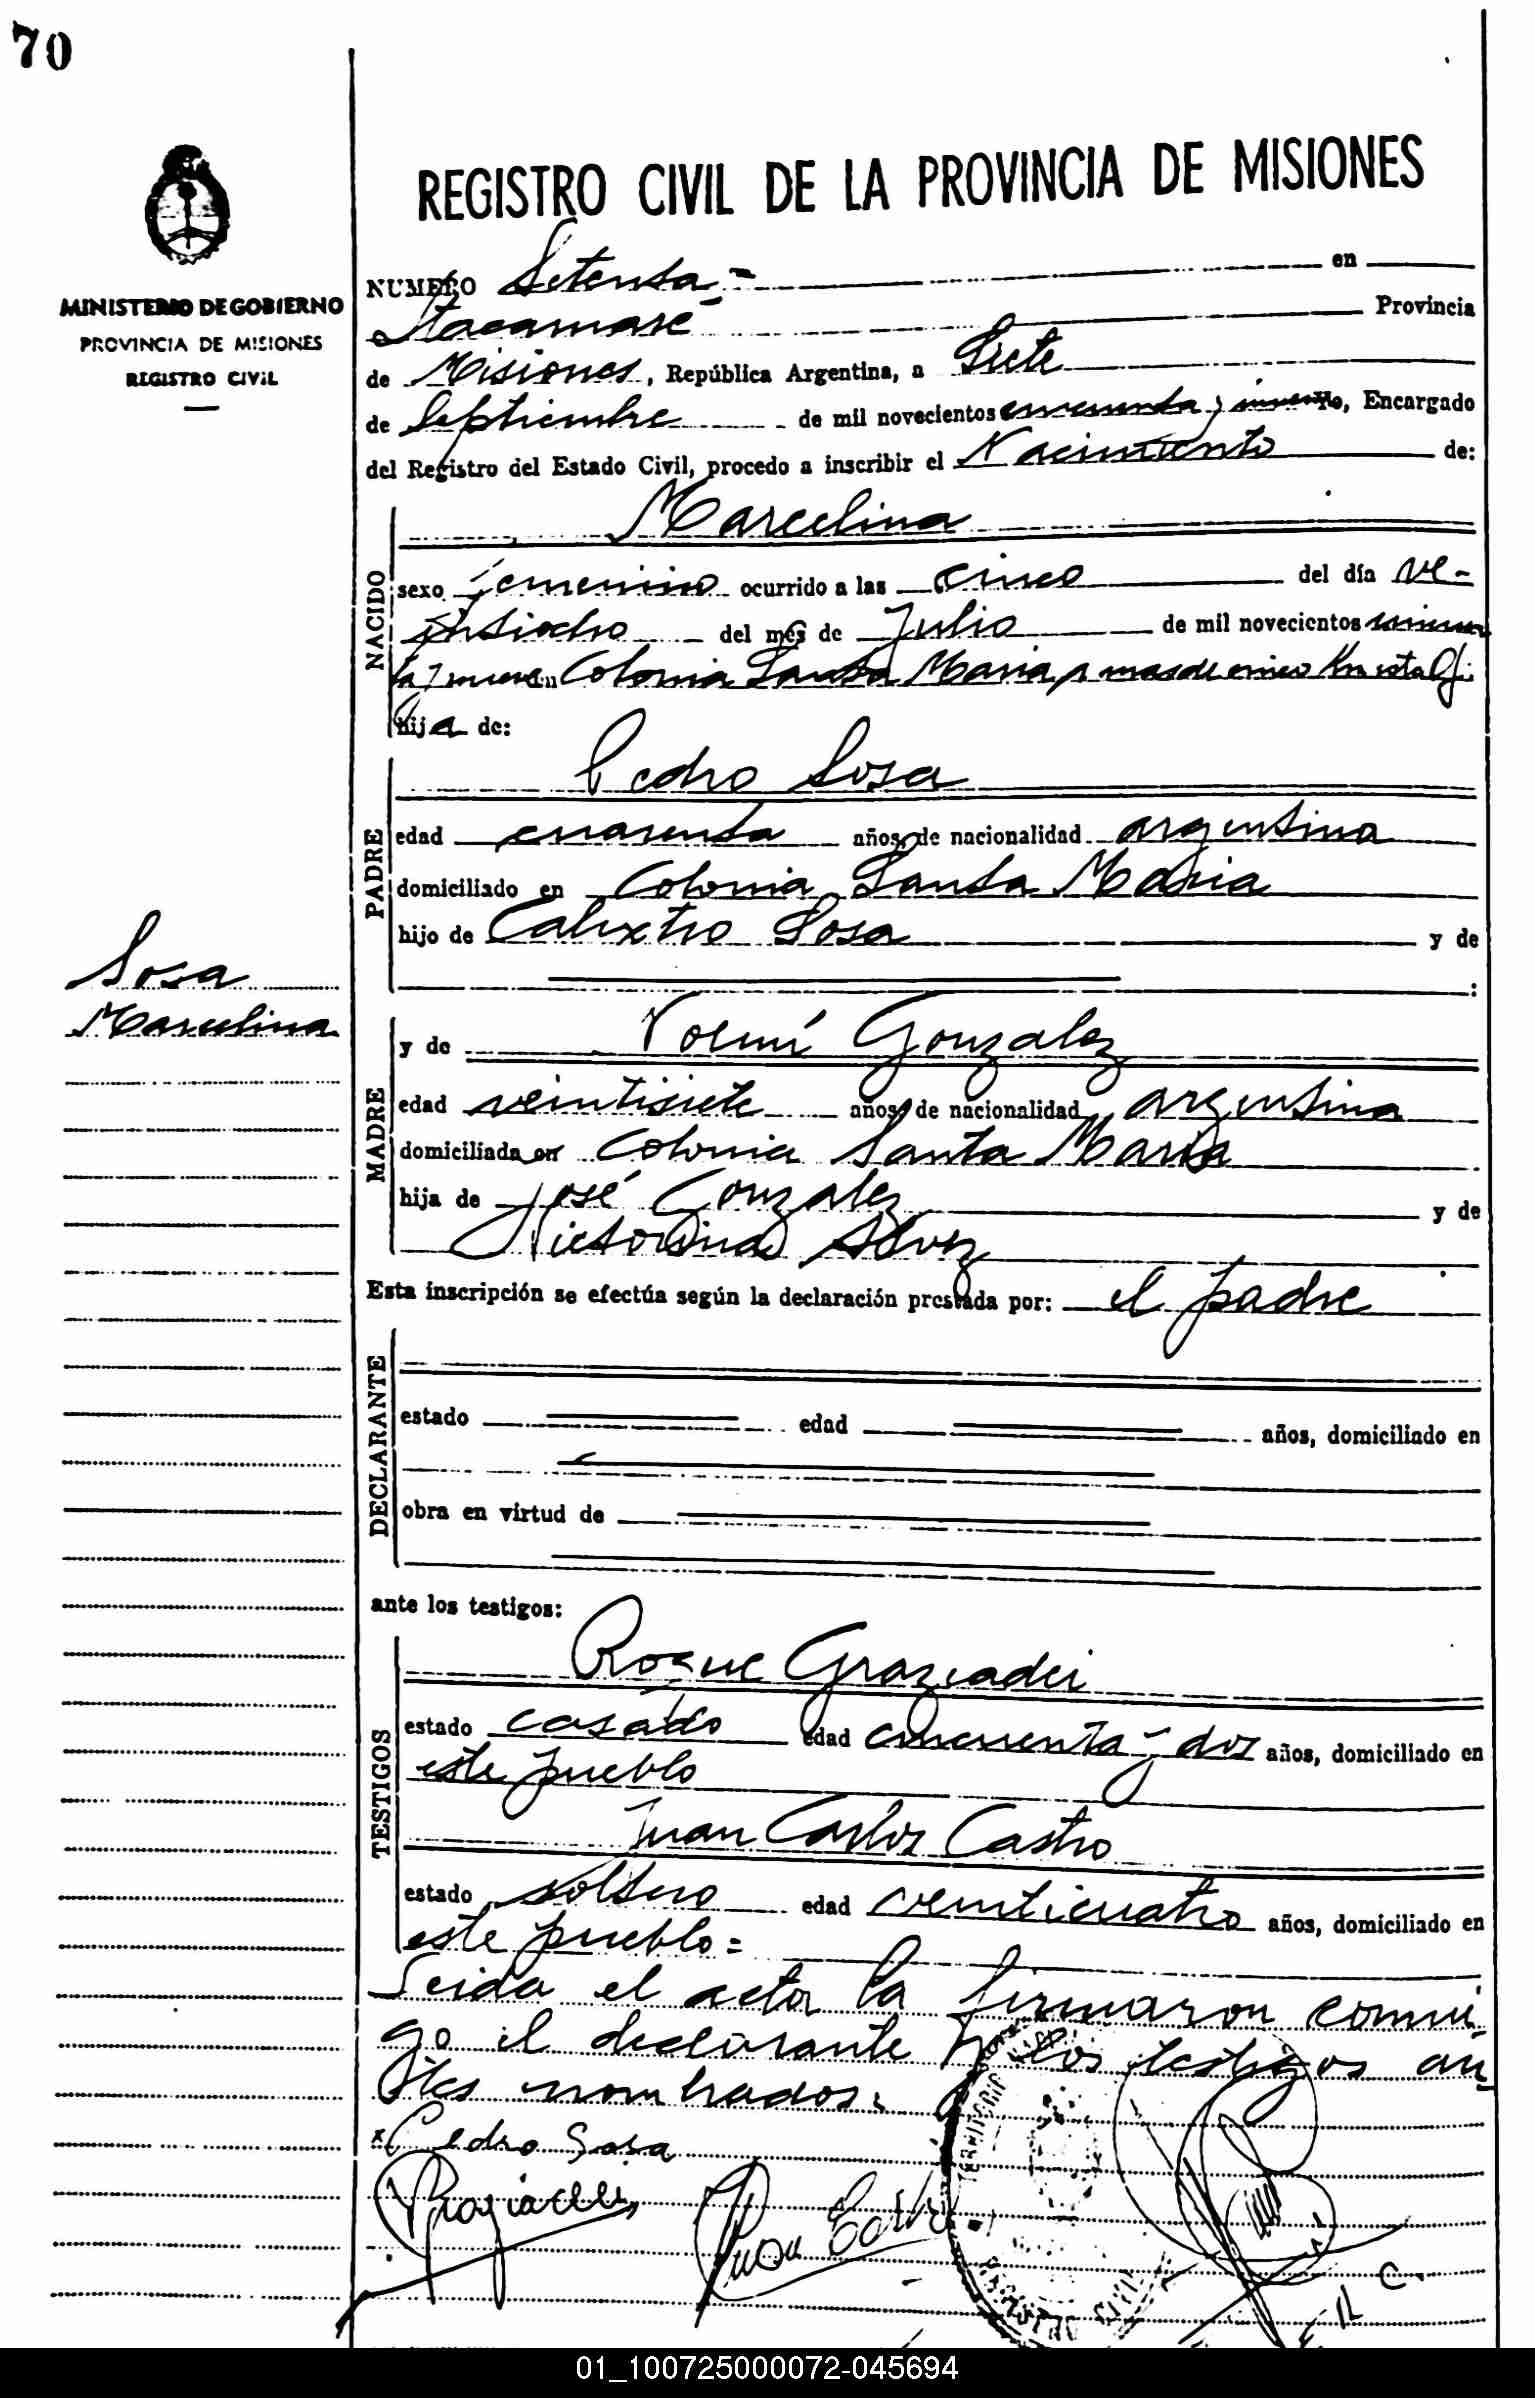 70
REGISTRO CIVIL DE LA PROVINCIA DE MISIONES
MINISTERIO DE GOBIERNO
PROVINCIA DE MISIONES
REGISTRO CIVIL
NUMERO Setenta = en
Itacaruaré Provincia
de Misiones, República Argentina, a Siete
de Septiembre de mil novecientos cincuenta y nueve Yo, Encargado
del Registro del Estado Civil, procedo a inscribir el Nacimiento de:
NACIDO
Marcelina
sexo femenino ocurrido a las cinco del día ve-
intiocho del mes de Julio de mil novecientos cincuen
ta y nueve en Colonia Santa Maria a mas de cinco Km esta Ofi.
hija de:
PADRE
Pedro Sosa
edad cuarenta años, de nacionalidad argentina
domiciliado en Colonia Santa Maria
hijo de Calixtro Sosa y de
:
Sosa
Marcelina
MADRE
y de Noemí Gonzalez
edad veintisiete años, de nacionalidad argentina
domiciliada en Colonia Santa Maria
hija de José Gonzalez y de
Victorina Alvez
Esta inscripción se efectúa según la declaración prestada por: el padre
DECLARANTE
estado edad años, domiciliado en
obra en virtud de
ante los testigos:
TESTIGOS
Roque Graziadei
estado casado edad cincuenta y dos años, domiciliado en
este pueblo
Juan Carlos Castro
estado soltero edad veinticuatro años, domiciliado en
este pueblo =
Leida el acta la firmaron conmi
go el declarante y los testigos an
tes nombrados.
x Pedro Sosa
Graziadei
Juan
REGISTRO CIVIL
01_100725000072-045694